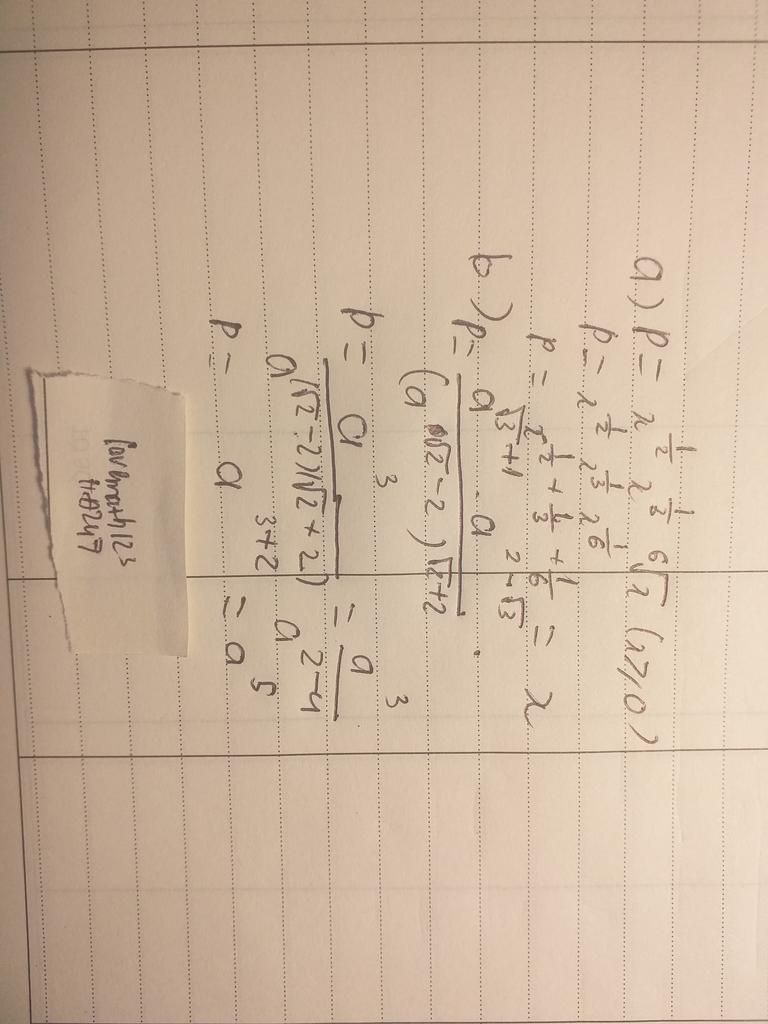 a) P = x^{1/2} x^{1/3} ⁶√x (x⩾0)
P = x^{1/2} x^{1/3} x^{1/6}
P = x^{1/2 + 1/3 + 1/6} = x
b) P = \frac{a^{√3+1} . a^{2-√3}}{(a^{√2-2})^{√2+2}} .
P = \frac{a^3}{a^{(√2-2)(√2+2)}} = \frac{a^3}{a^{2-4}}
P = a^{3+2} = a^5
lovemath123